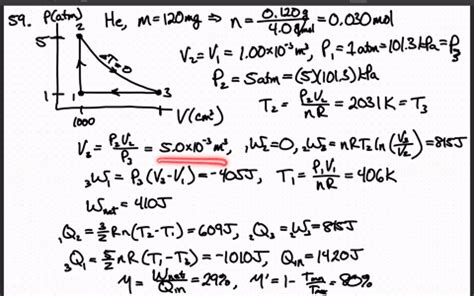 59. P(atm) He, m=120mg ⇒ n = 0.120g / 4.0 g/mol = 0.030mol
5 2 ΔT=0 V₂=V₁ = 1.00×10⁻³m³, P₁=1atm=101.3kPa=P₃
P₂=5atm=(5)(101.3)kPa
1 1 3 T₂ = P₂V₂/nR = 2031K = T₃
V(cm³)
1000
V₃ = P₂V₂/P₃ = 5.0×10⁻³m³, ₁W₂=0, ₂W₃=nRT₂ln(V₃/V₂)=815J
₃W₁ = P₃(V₃-V₁) = -405J, T₁ = P₁V₁/nR = 406K
Wnet = 410J
₁Q₂ = 3/2 Rn(T₂-T₁) = 609J, ₂Q₃ = ₂W₃ = 815J
₃Q₁ = 5/2 nR(T₁-T₃) = -1010J, Qin = 1420J
η = Wnet/Qin = 29%, η' = 1 - Tmin/Tmax = 80%